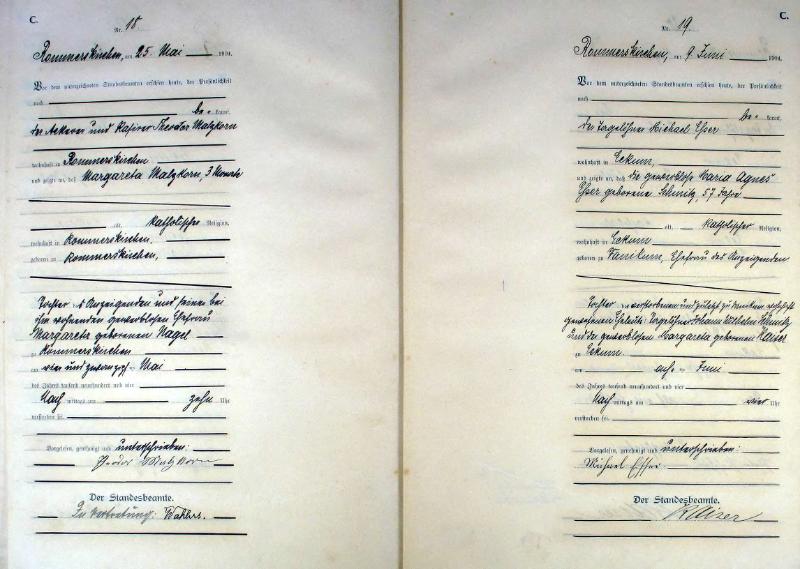 C.
Nr. 18
Rommerskirchen, am 25 Mai 1904.
Vor dem unterzeichneten Standesbeamten erschien heute, der Persönlichkeit
nach
be = kannt,
der Ackerer und Theodor Malzkorn
wohnhaft in Rommerskirchen
und zeigte an, daß Margareta Malzkorn, 3 Monate
alt, katholischer Religion,
wohnhaft in Rommerskirchen,
geboren zu Rommerskirchen,
Tochter des Anzeigenden und seiner bei
ihm wohnenden gewerblosen Ehefrau
Margareta geborenen Nagel
zu Rommerskirchen
am vier und zwanzigsten Mai
des Jahres tausend neunhundert und vier
Nach mittags um zehn Uhr
verstorben sei.
Vorgelesen, genehmigt und unterschrieben:
Theodor Malzkorn
Der Standesbeamte.
In Vertretung: Wahlers.
C.
Nr. 19.
Rommerskirchen, am 9 Juni 1904.
Vor dem unterzeichneten Standesbeamten erschien heute, der Persönlichkeit
nach
be = kannt,
der Tagelöhner Michael Esser
wohnhaft in Eckum,
und zeigte an, daß die gewerblose Maria Agnes
Esser geborene Schmitz, 57 Jahre
alt, katholischer Religion,
wohnhaft in Eckum
geboren zu Ehefrau des Anzeigenden
Tochter der verstorbenen und zuletzt zu wohnhaft
gewesenen Eheleute: Tagelöhner Johann Wilhelm Schmitz
und der gewerblosen Margareta geborenen Kaiser
zu Eckum
am acht Juni
des Jahres tausend neunhundert und vier
Nach mittags um vier Uhr
verstorben sei.
Vorgelesen, genehmigt und unterschrieben:
Michael Esser
Der Standesbeamte.